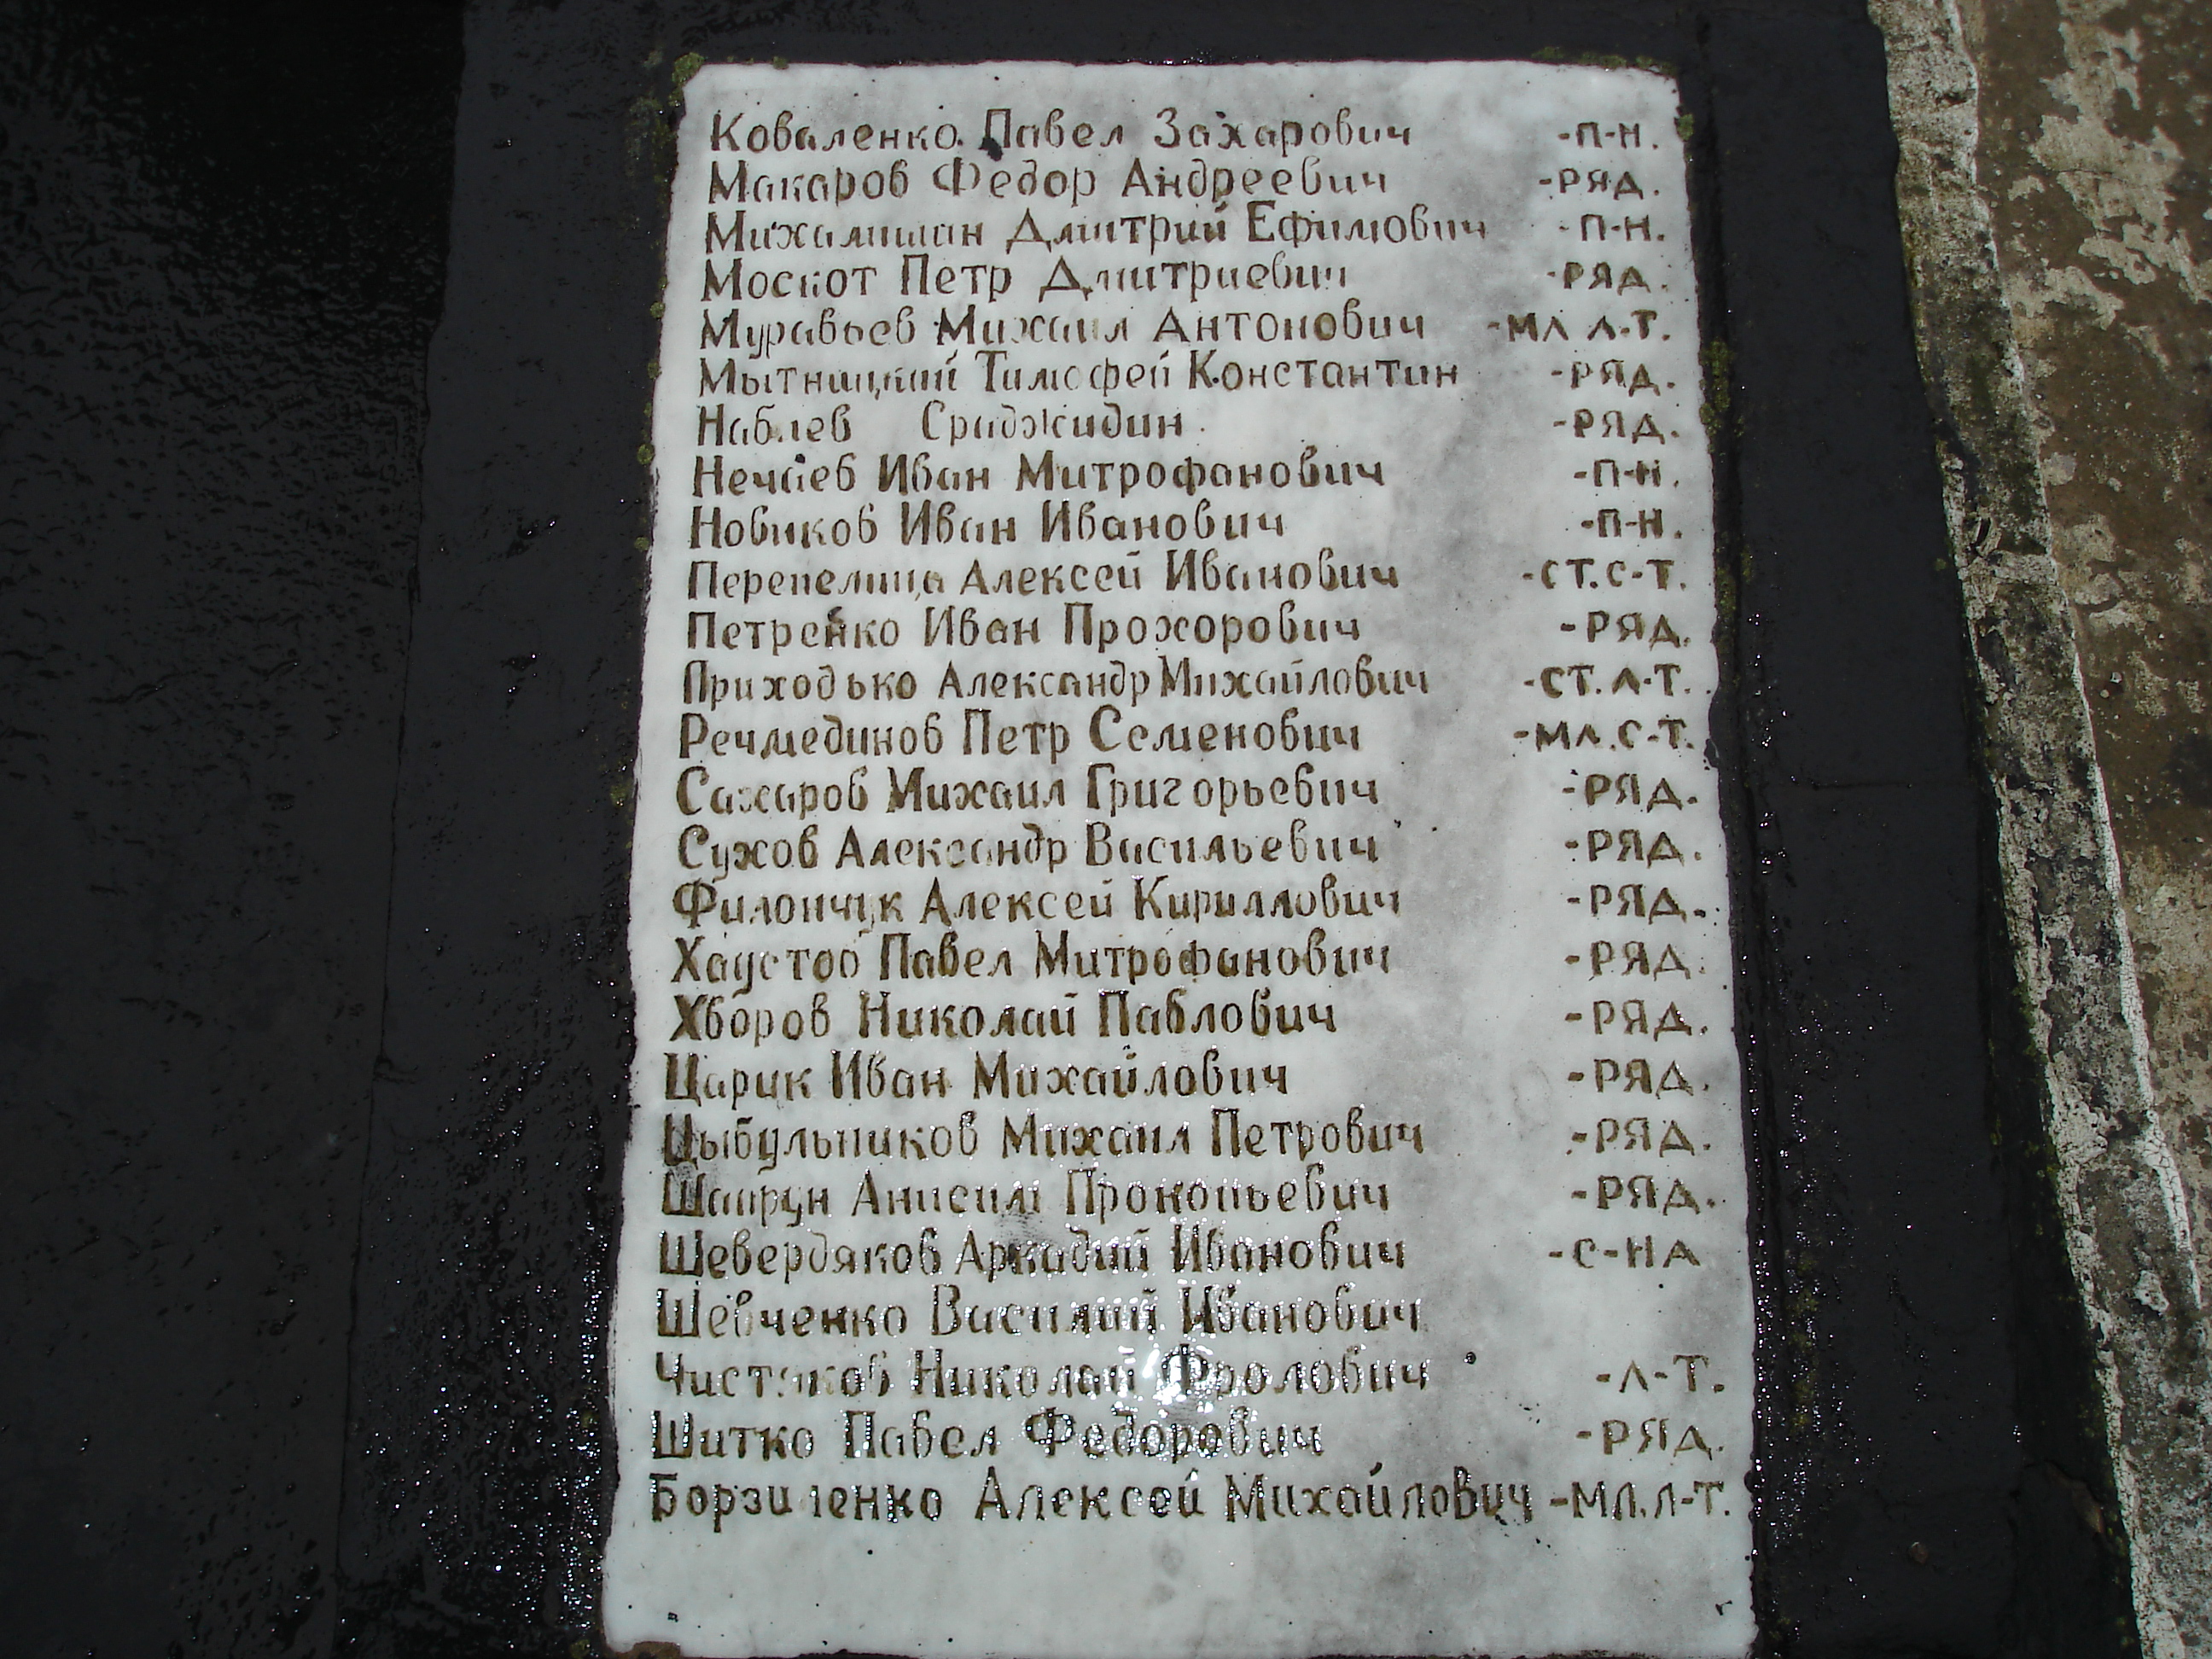 Коваленко Павел Захарович -П-Н.
Макаров Федор Андреевич -РЯД.
Михалишин Дмитрий Ефимович -П-Н.
Москот Петр Дмитриевич -РЯД.
Муравьев Михаил Антонович -МЛ Л-Т.
Мытницкий Тимофей Константин -РЯД.
Наблев Сраджидин -РЯД.
Нечаев Иван Митрофанович -П-Н.
Новиков Иван Иванович -П-Н.
Перепелица Алексей Иванович -СТ.С-Т.
Петренко Иван Прохорович -РЯД.
Приходько Александр Михайлович -СТ.Л-Т.
Речмединов Петр Семенович -МЛ.С-Т.
Сахаров Михаил Григорьевич -РЯД.
Сухов Александр Васильевич -РЯД.
Филончук Алексей Кириллович -РЯД.
Хаустов Павел Митрофанович -РЯД.
Хворов Николай Павлович -РЯД.
Царик Иван Михайлович -РЯД.
Цыбульников Михаил Петрович -РЯД.
Шапрун Анисим Прокопьевич -РЯД.
Шевердяков Аркадий Иванович -С-НА
Шевченко Василий Иванович
Чистяков Николай Фролович -Л-Т.
Шитко Павел Федорович -РЯД.
Борзиленко Алексей Михайлович -МЛ.Л-Т.